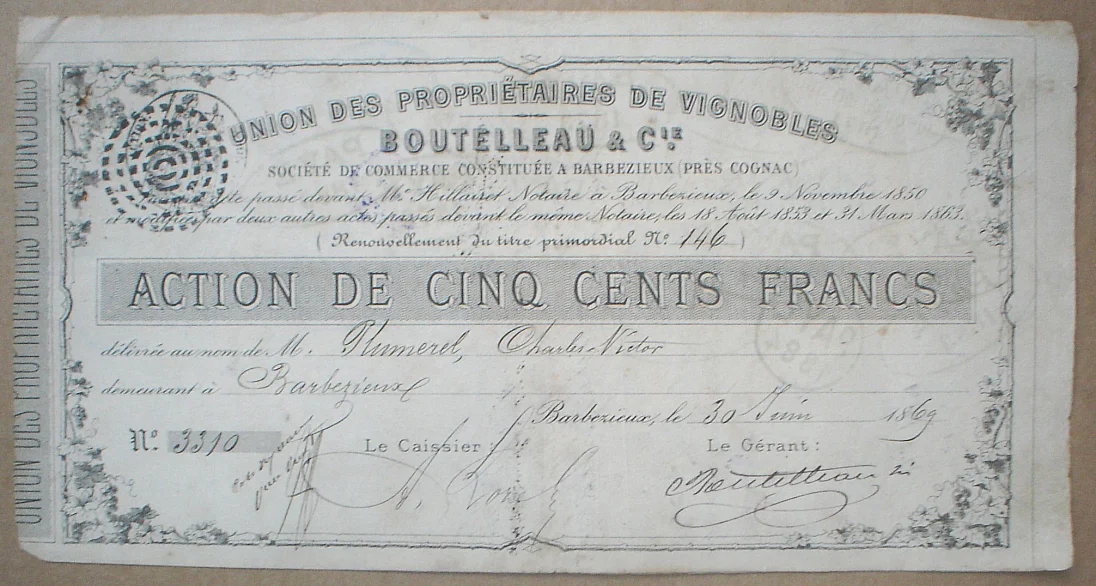 UNION DES PROPRIÉTAIRES DE VIGNOBLES
UNION DES PROPRIÉTAIRES DE VIGNOBLES
BOUTELLEAU & CIE.
SOCIÉTÉ DE COMMERCE CONSTITUÉE A BARBEZIEUX (PRÈS COGNAC)
acte passé devant Me. Hillairet Notaire à Barbezieux, le 9 Novembre 1850
et modifiée par deux autres actes passés devant le même Notaire, les 18 Août 1853 et 31 Mars 1863.
( Renouvellement du titre primordial No. 146 )
ACTION DE CINQ CENTS FRANCS
délivrée au nom de M. Plumerel, Charles Victor
demeurant à Barbezieux
Barbezieux, le 30 Juin 1869
No. 3310 Le Caissier : Le Gérant :
Boutelleau